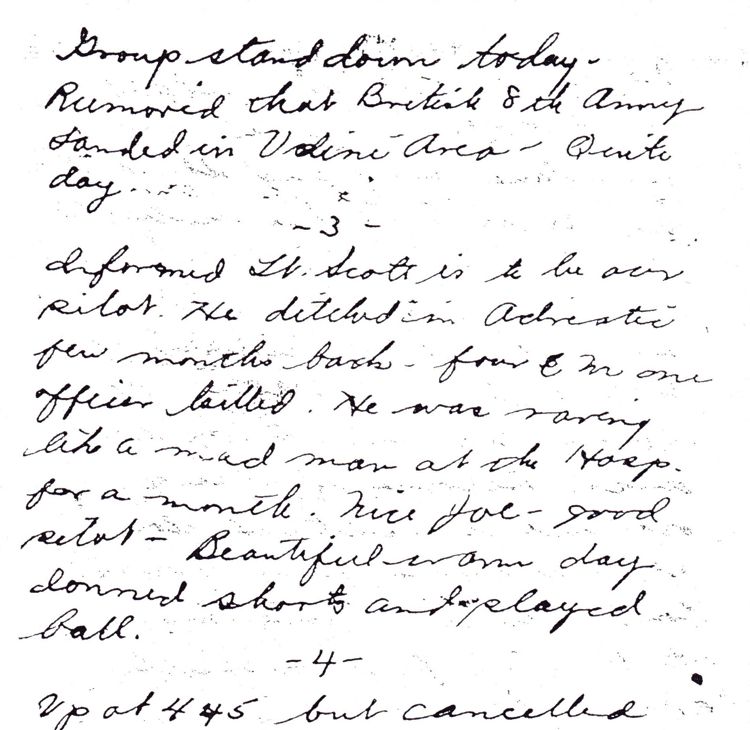 Group stand down today -
Rumored that British 8th Army
landed in Udine Area - Quite
day.
- 3 -
Informed Lt. Scott is to be our
pilot. He ditched in Adriatic
few months back - four EM one
officer killed. He was raving
like a mad man at the Hosp.
for a month. Nice Joe - good
pilot - Beautiful warm day
donned shorts and played
ball.
- 4 -
Up at 445 but cancelled